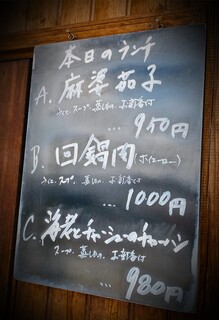 本日のランチ
A. 麻婆茄子
ライス、スープ、蒸し物、お新香付
... 950円
B. 回鍋肉(ホイコーロー)
ライス、スープ、蒸し物、お新香付
... 1000円
C. 海老とチャーシューのチャーハン
スープ、蒸し物、お新香付
... 980円